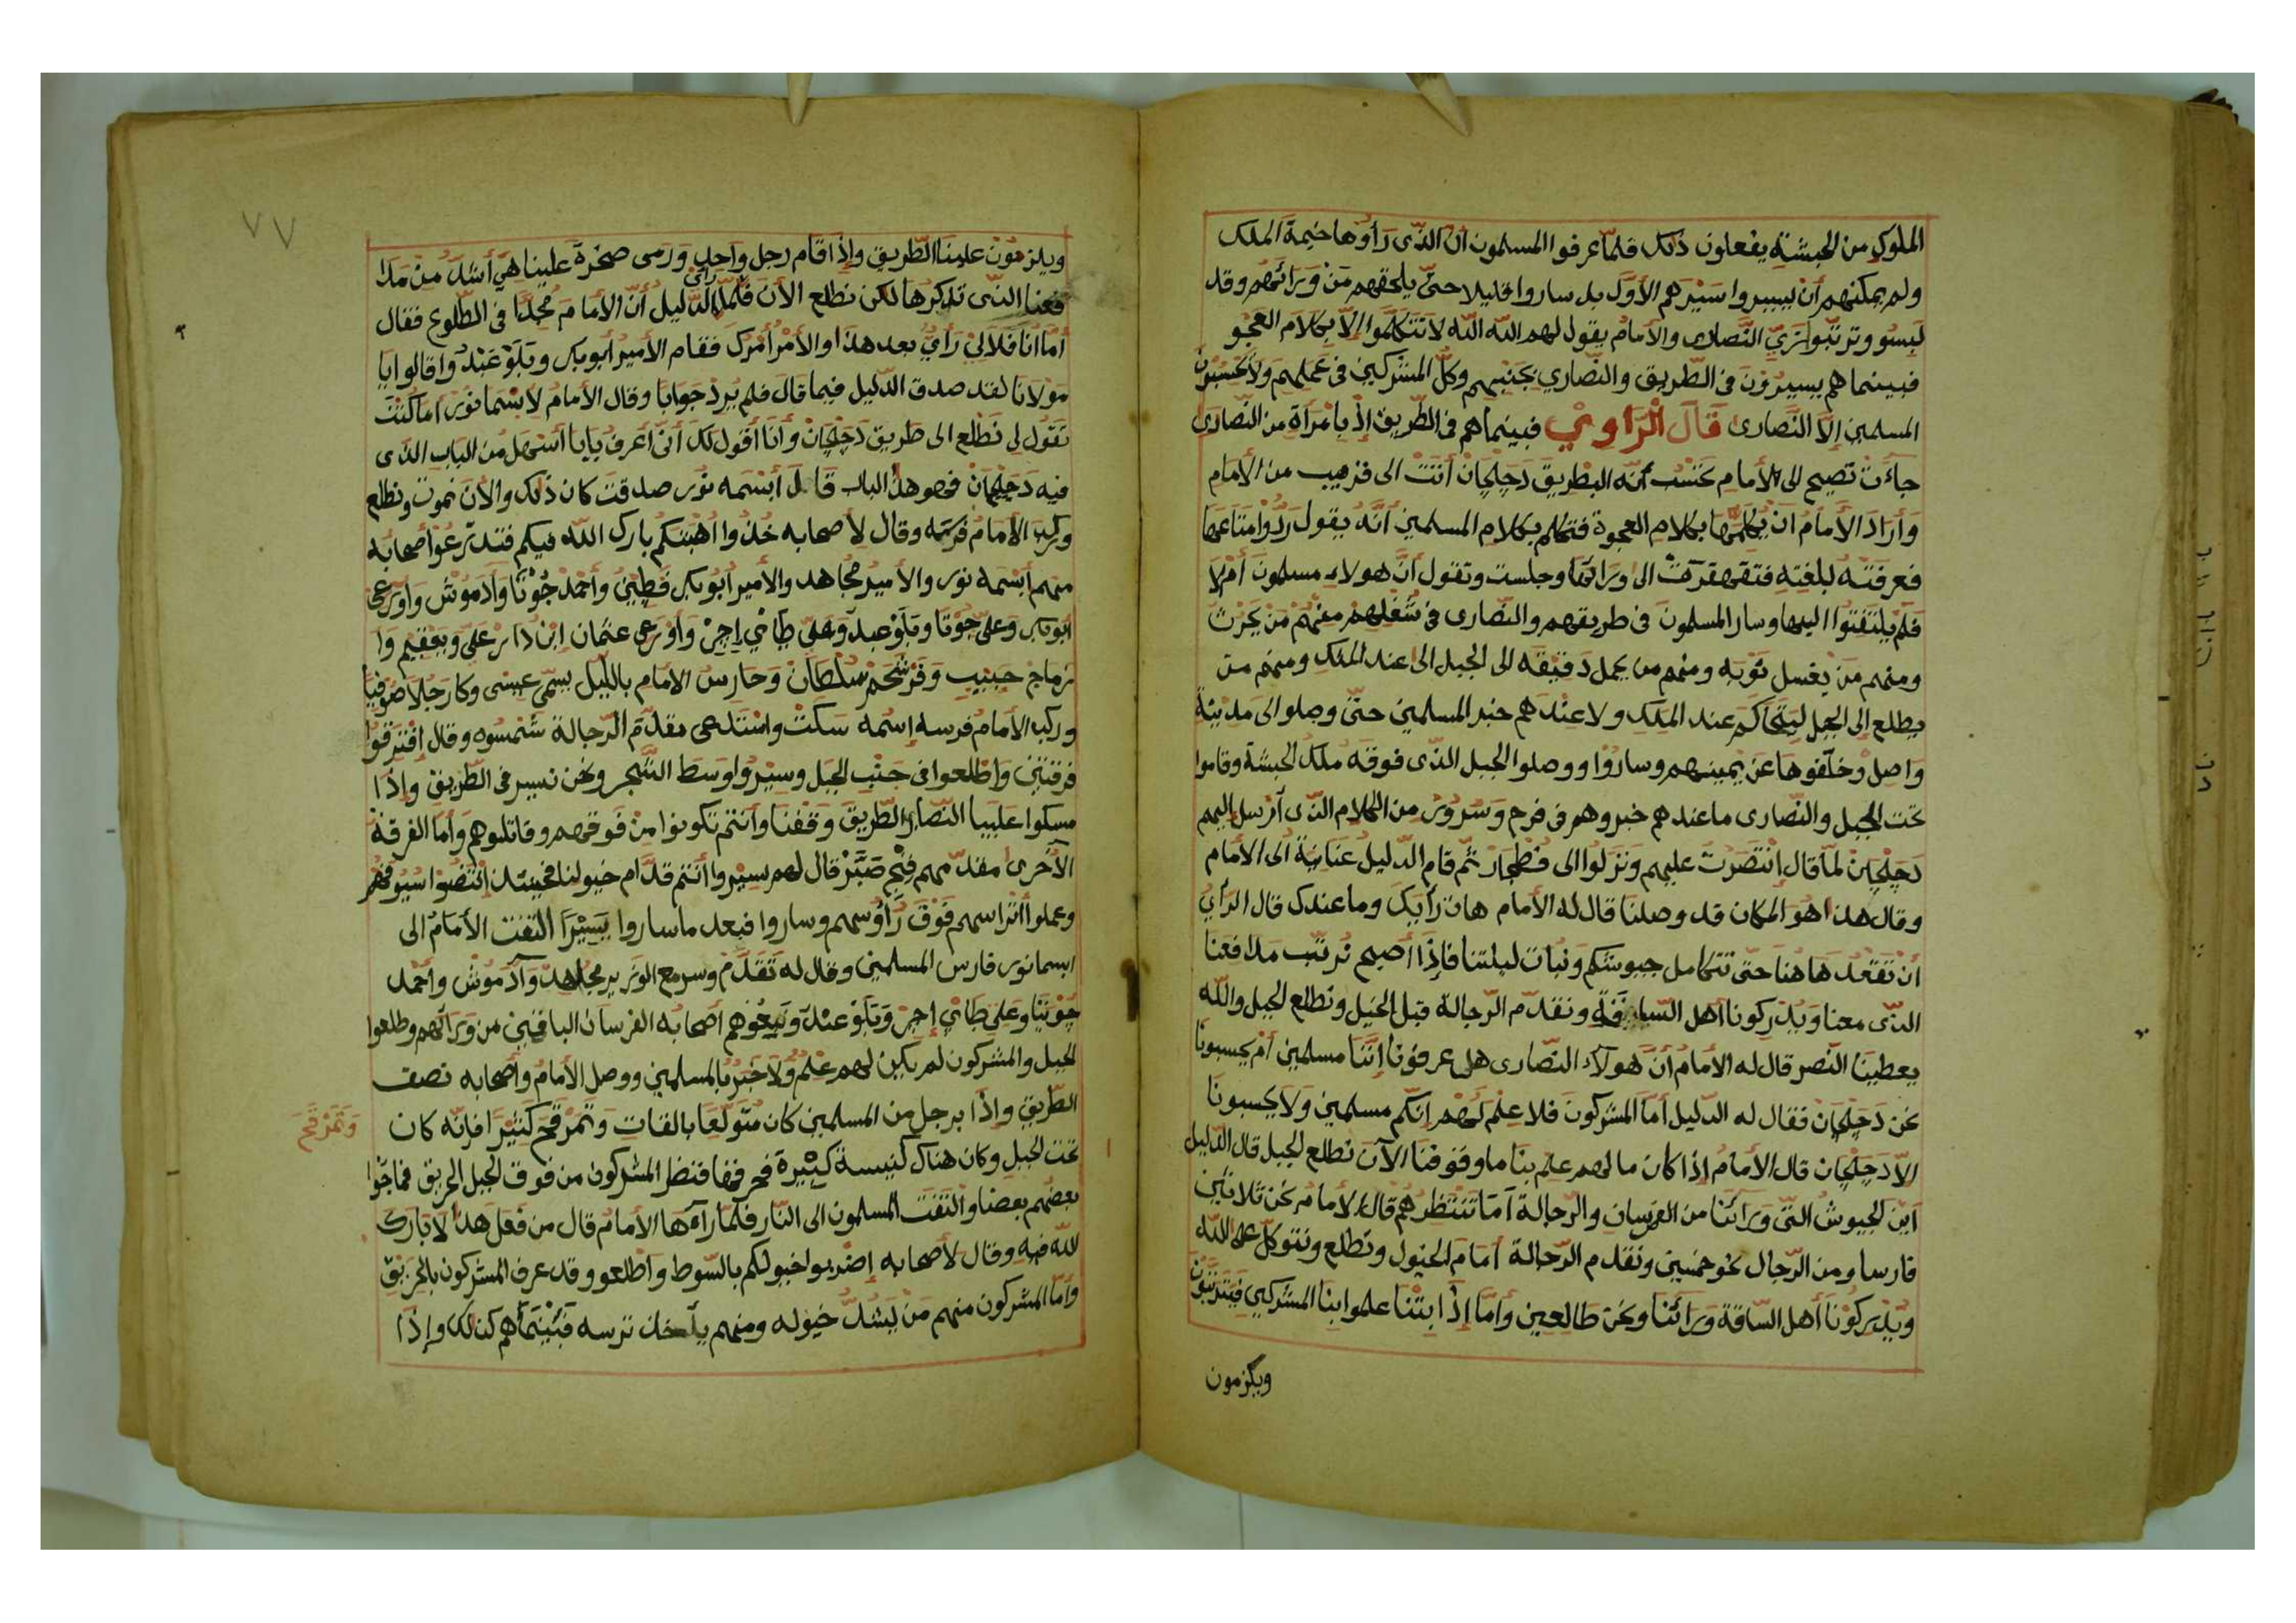 الملوك من الحبشة يفعلون ذلك فلمّا عرفوا المسلمون أن الذّى رَأوْها خيمة الملك
ولم يمكنهم أنْ يسيروا سَيْرهم الأوّل بل ساروا قليلا حتىّ يلحقهم مَنْ وَرَائهم وقد
لبسو وترتّبوا بزيّ النّصارى والأمامُ يقول لهم الله الله لا تتكلّموا إلاّ بكلام العجو
فبينما هم يسيرُوْنَ فى الطّريق والنّصاري بجَنْبهم وكلّ المشركين فى عملهم ولا يحسَبُوْنَ
المسلمين إلاّ النّصارى قَالَ الْرّاوِيْ فبينما هم فى الطّريق إذْ بامْرَأة من النّصارى
جاءَتْ تصيح الى الأمامِ تحْسُبُ أنّه البطْريقَ دَجَلْحَانْ أتَتْ الى قريب من الأمام
وَأرَادَ الأمامُ انْ يُكلّمها بكلام العجوة فتكلم بكلام المسلمين أنّهُ يقول رُدُّوا مَتَاعَها
فعرفَتْهُ بلغتِهِ فتقهقرَتْ الى ورائها وجلست وتقول أنَّ هولاءِ مسلمون أمْ لا
فلمْ يلتفتُوا اليها وسار المسلمونَ فى طريقهم والنّصارى فى شُغلِهمْ منهُمْ مَنْ يحْرُثْ
ومنهم مَنْ يغسل ثَوْبَه ومنهم من يحمل دَقيْقَه الى الجبل الى عند الملك ومنهم من
يطلع إلى الجبل ليتحاكَم عند الملِك ولا عِنْدَهم خبر المسلمين حتىّ وصلو الى مدينة
وَاصِلْ وخلّفوها عن يمينهم وساروْا ووصلوا الجبل الذّى فوقَهُ ملك الحبشة وقاموا
تحت الجبل والنّصارى ما عندهم خبر وهم فى فرح وَسُرُوْر من الكلام الذّى أرسل اليهم
دَجَلْحَان لمّا قال إنْتَصَرْتُ عليهم وَنزلوا الى فطجار ثمّ قام الدّليل عَنانِهُ الى الأمام
وقال هذا هُوَ المكان قد وصلنا قال له الأمام هات رَأيَكَ وما عندك قال الرّأيُ
أنْ نَقْعُدَ هَاهُنا حتىّ تتكامل جيوشكم ونبات ليلتنا فإذَا أصبح نُرتّب مدافعنا
الذّى معنا وَيُدْركونا أهل السّاقَةِ ونقدّم الرّجالة قبل الخيل ونطلع الجبل والله
يعطيْنا النّصر قال له الأمامُ أنَّ هَولاَء النّصارى هل عرفوْنا إنّنا مسلمين أمْ يحسبونا
نحن دَجَلْحَانْ فقال له الدّليل أمّا المشركون فلا علم لَهُمْ إنّكم مسلمين ولا يحسبونا
الاّ دَجَلْحَان قال الأمامُ إذَا كان ما لهم علم بنا ما وقوفنا الآن نطلع الجبل قال الدّليل
أين الجيوشُ التّى وَرَائنا من الفُرسانِ والرّجالة أمَا تنتظرهُمْ قال الأمامُ نحن ثلاثين
فارسا ومن الرّجال نحو خمسين ونقدم الرّجالة أمامَ الخيول ونطلع ونتوكّل على الله
وَيُدْركوْنا أهل السّاقة وَرَائنا ونحن طالعين وأمّا إذَا بتْنا علموا بنا المشركين فيترتّبُوْن
ويلزمون
٧٧
ويلزمُوْن علينا الطّريق وإذا قام رجل واحد وَرَمى صخرة علينا هِيَ أشدُّ منْ مدا
فعنا التّى تذكرها لكن نطلع الآن فلمّا رائ الدّليل أنّ الأمامَ مجدًّا فى الطّلوع فقال
أمّا انا فلا لىْ رَأيُ بعد هذا والأمْرُ أمْرك فقام الأميرُ أبو بكر وَبَلَوْ عَبْدُ وقالوا يا
مَوْلانا لقد صدق الدّليل فيما قال فلم يُردْ جَوابًا وقال الأمامُ لأبْسَما نُوْر اما كُنْتَ
تقوْل لى نَطْلع الى طريق دَجَلْحَانْ وأنا أقول لك أنّى أعرفُ بابا أسْهل من الباب الذّى
فيه دَجَلْحَانْ فهو هذا الباب قال أبْسَمه نوْر صدقت كان ذلك والآن نموت ونطلع
وركب الأمامُ فرسَه وقال لأصحابه خُذوا اهْبَتكم بارك الله فيكم فتدرّعُوْا أصحابه
منهم أبْسَمه نور والأميرُ مجاهد والأمير أبوُ بكر قطِيْنُ وأحْمدْ جُوْتا وآدمُوْش وَاوْرَعي
ابو بكر وعلى جُوْتا وبَلَوْ عبد وَعلىّ طامي إجرْ وأوْرعي عثمان إبْنُ دَار علىّ وبعقيم وا
زماج حبيب وَفَرَشحَمْ سُلطانْ وحارسُ الأمام باللّيل يسمّى عيسى وكا رجلا صُوْفيًّا
وركب الأمام فرسه إسْمهُ سَكَبْ واسْتدعى مقدّم الرّجالة شمسُوه وقال إفْتَرقُوْا
فرقتيْن وَاطْلعوا فى جَنْب الجبل وسيْروا وسَط الشّجر ونحن نسير فى الطّريق وإذَا
مسكوا عليْنا النّصارى الطّريقَ وَقفْنا وأنتمْ تكونوا منْ فَوقهم وقاتلوهم وَأمّا الفرقةُ
الأخرى مقدّمهم فتْح صَبَّرْ قال لهم سيْروا أنتمْ قدّام خيولنا فحينئذ إنْتضُوْا سيوفهم
وعملوا أتْراسهم فَوْقَ رَأوُسهم وساروا فبعد ما ساروا يَسِيْرًا التفت الأمامُ الى
ابسما نور فارس المسلمين وقال له تقدّمْ وسر مع الوزير مجاهدْ وآدموش وأحمد
جُوْتيا وعلى طامي إجرْ وَبَلَوْ عبْدْ وتبعُوْهم أصحابه الفرسان الباقيْن من وَرَائهم وطلعوا
الجبل والمشركون لم يكن لهم علْم ولا خبر بالمسلمين ووصل الأمامُ وأصحابه نصف
الطّريق وإذَا برجل من المسلمين كان متولّعًا بالقات وتمرْقحَ كثيْرًا فإنّه كان
وَتَمَرْقَحَ
تحت الجبل وكان هناك كنيسة كبيْرة فحرقها فنظر المشركون من فوق الجبل الحريق فماجُوا
بعضُهم بعضا والتفَتَ المسلمون الى النّار فلمّا رآها الأمامُ قال من فعل هذا لا بارك
الله فيه وقال لأصحابه إضْربوا خيولكم بالسّوط وَاطلعو وقد عرف المشركون بالحَرِيْق
وأمّا المشركون منهم مَنْ يَشُدُّ خيوله ومنهم يأخذ ترسه فبيْنَما هم كذلك وإذَا